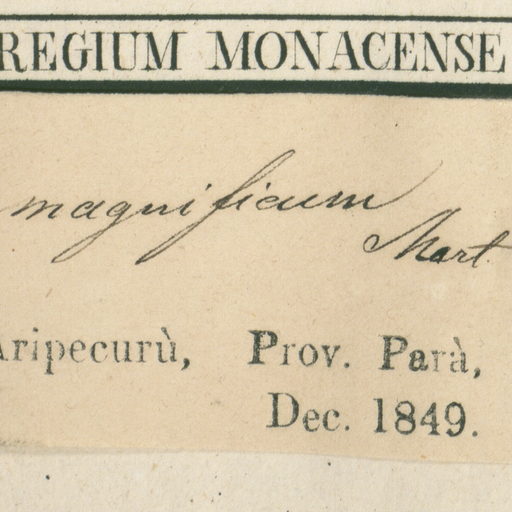 REGIUM MONACENSE
magnificum
Mart.
Aripecurù, Prov. Parà,
Dec. 1849.